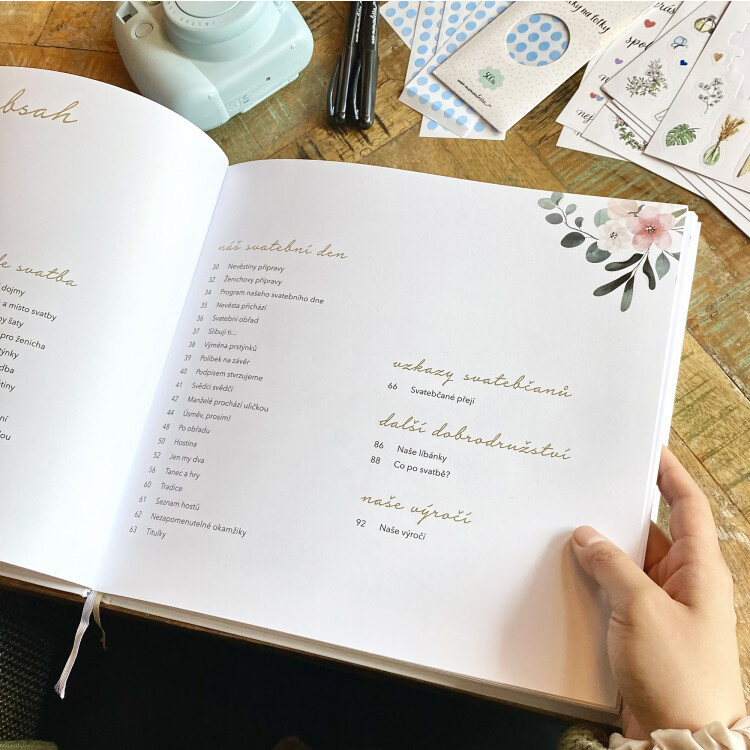 obsah
svatba
dojmy
a místo svatby
šaty
pro ženicha
náš svatební den
30 Nevěstiny přípravy
32 Ženichovy přípravy
34 Program našeho svatebního dne
35 Nevěsta přichází
36 Svatební obřad
37 Slibuji ti...
38 Výměna prstýnků
39 Polibek na závěr
40 Podpisem stvrzujeme
41 Svědci svědčí
42 Manželé prochází uličkou
44 Úsměv, prosím!
48 Po obřadu
50 Hostina
52 Jen my dva
56 Tanec a hry
60 Tradice
61 Seznam hostů
62 Nezapomenutelné okamžiky
63 Titulky
vzkazy svatebčanů
66 Svatebčané přejí
další dobrodružství
86 Naše líbánky
88 Co po svatbě?
naše výročí
92 Naše výročí
na fotky